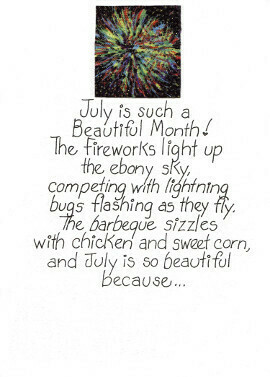 July is such a
Beautiful Month!
The fireworks light up
the ebony sky,
competing with lightning
bugs flashing as they fly.
The barbeque sizzles
with chicken and sweet corn,
and July is so beautiful
because...